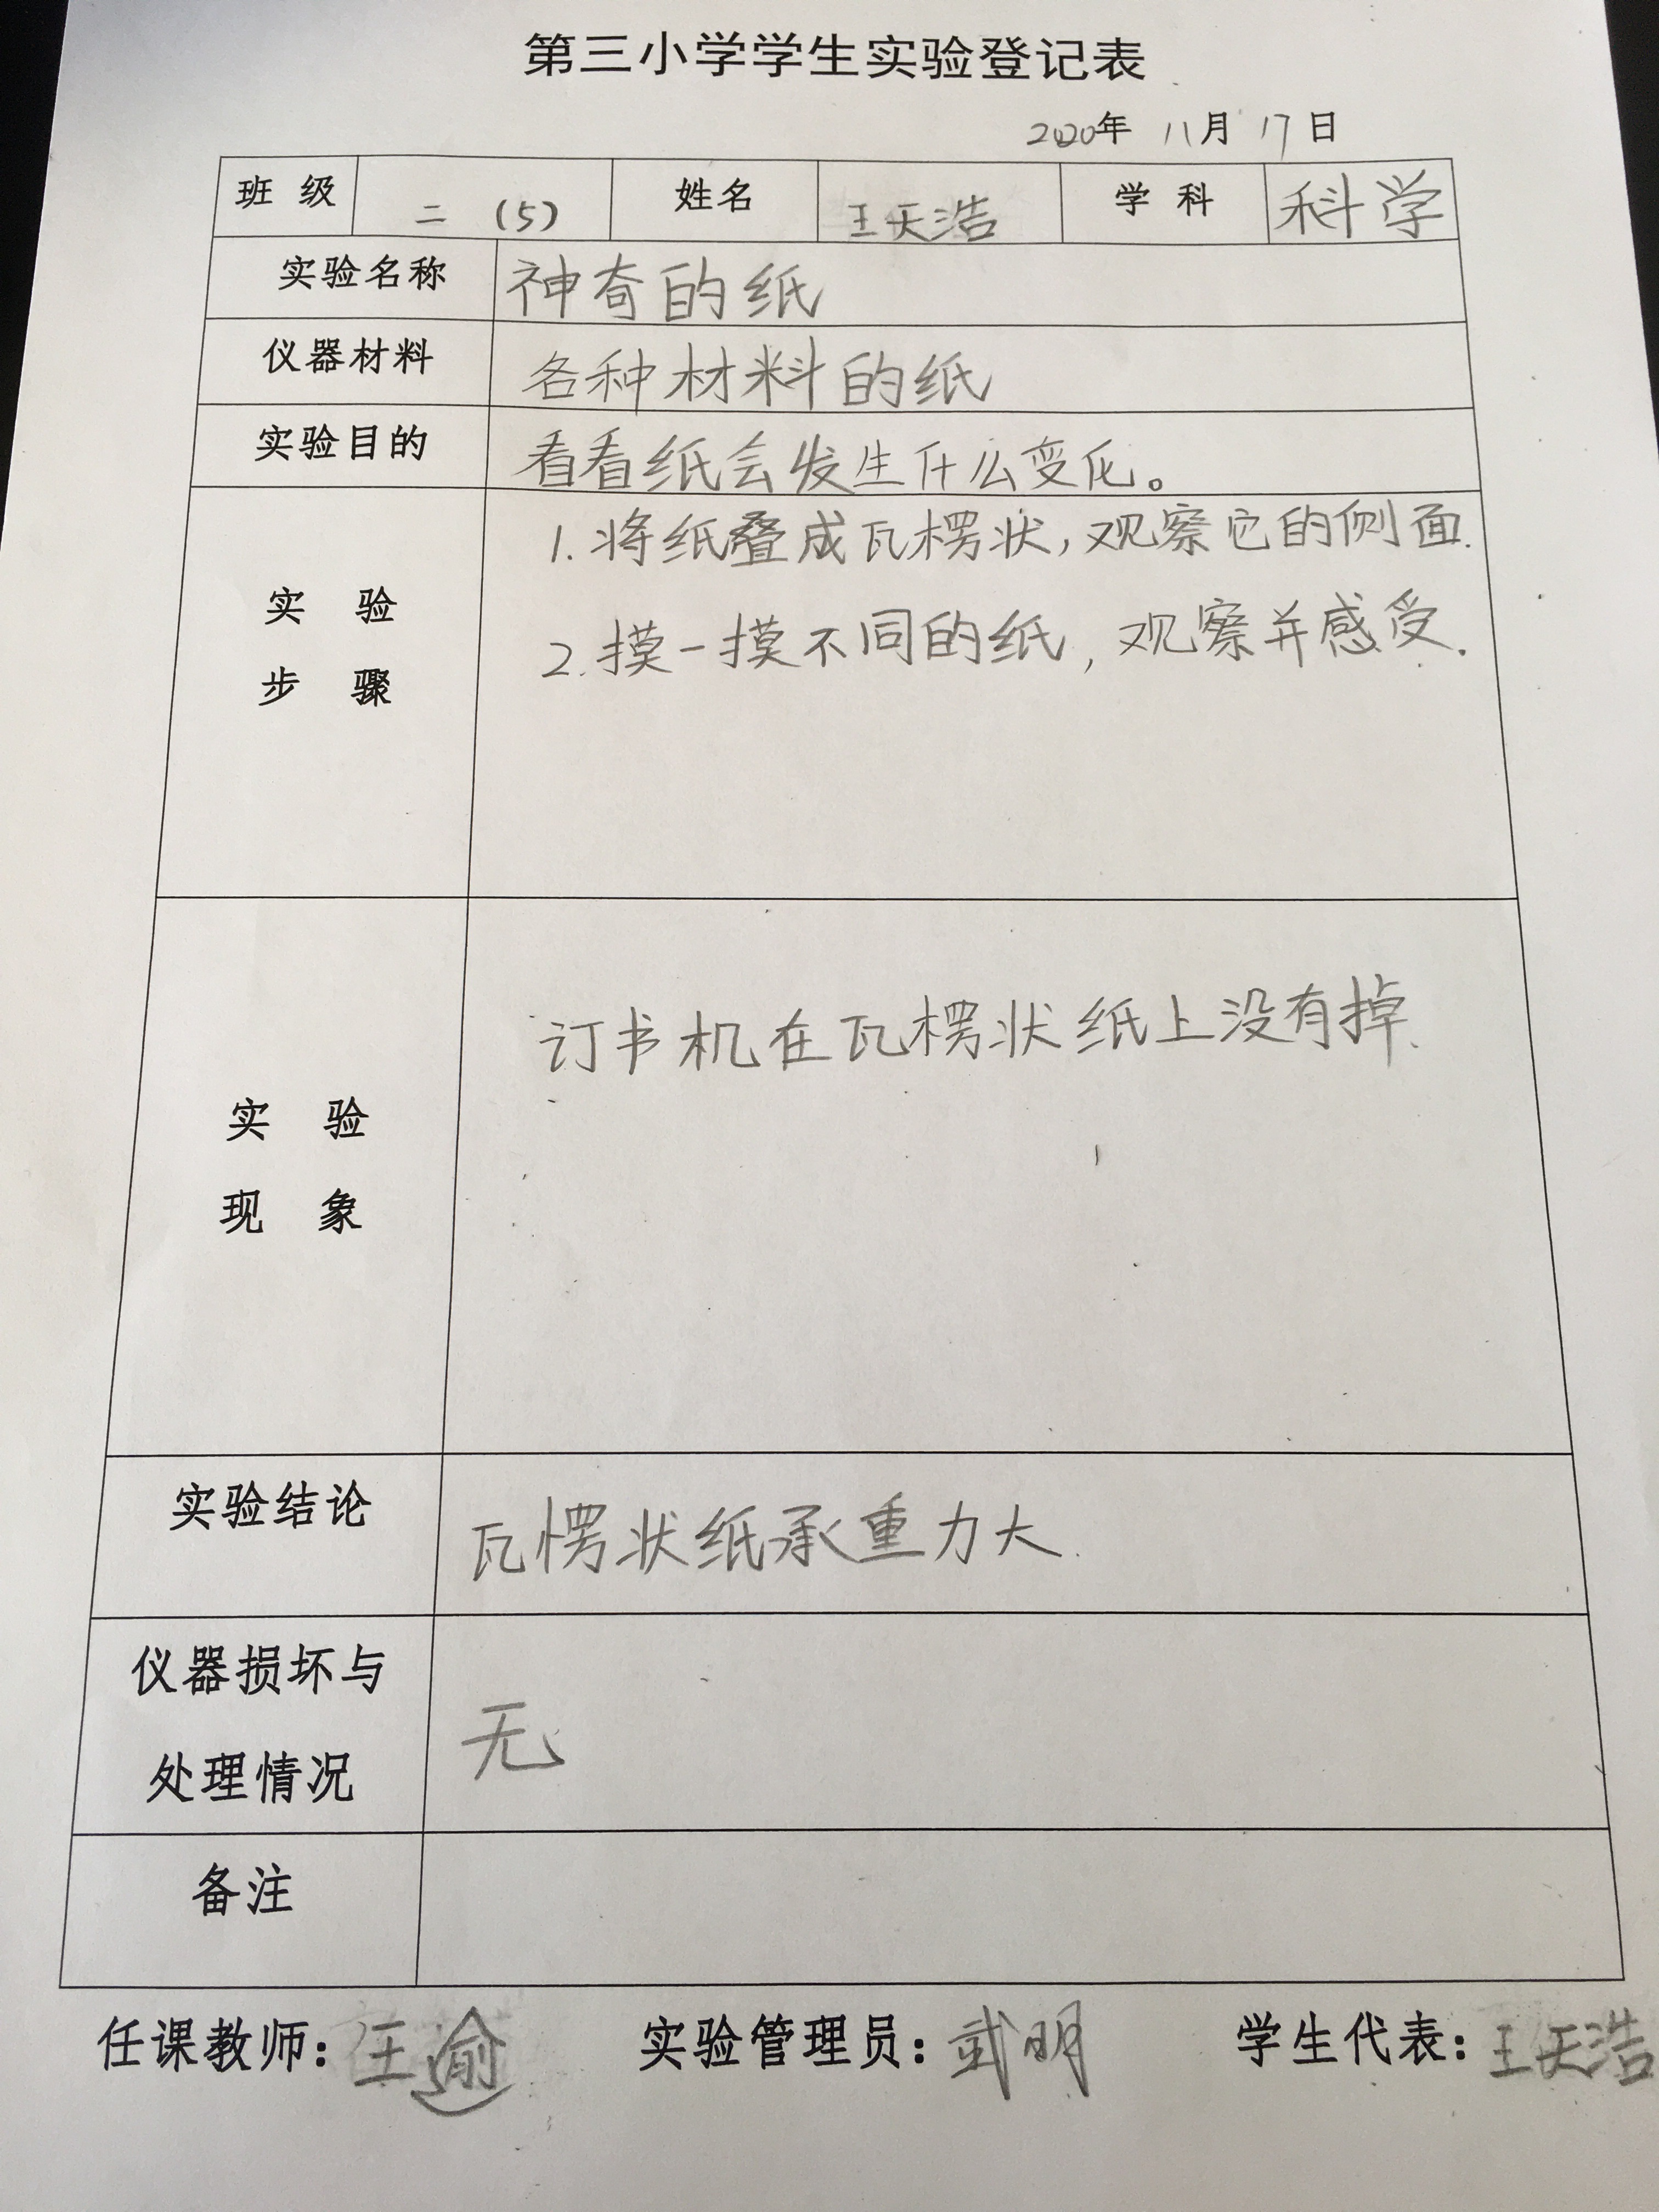 第三小学学生实验登记表
2020年 11月 17日
班 级 二 (5) 姓名 王天浩 学 科 科学
实验名称 神奇的纸
仪器材料 各种材料的纸
实验目的 看看纸会发生什么变化。
实 验
步 骤
1. 将纸叠成瓦楞状,观察它的侧面.
2. 摸一摸不同的纸,观察并感受.
实 验
现 象
订书机在瓦楞状纸上没有掉.
实验结论 瓦愣状纸承重力大.
仪器损坏与
处理情况
无
备注
任课教师: 王谕 实验管理员: 武明 学生代表: 王天浩